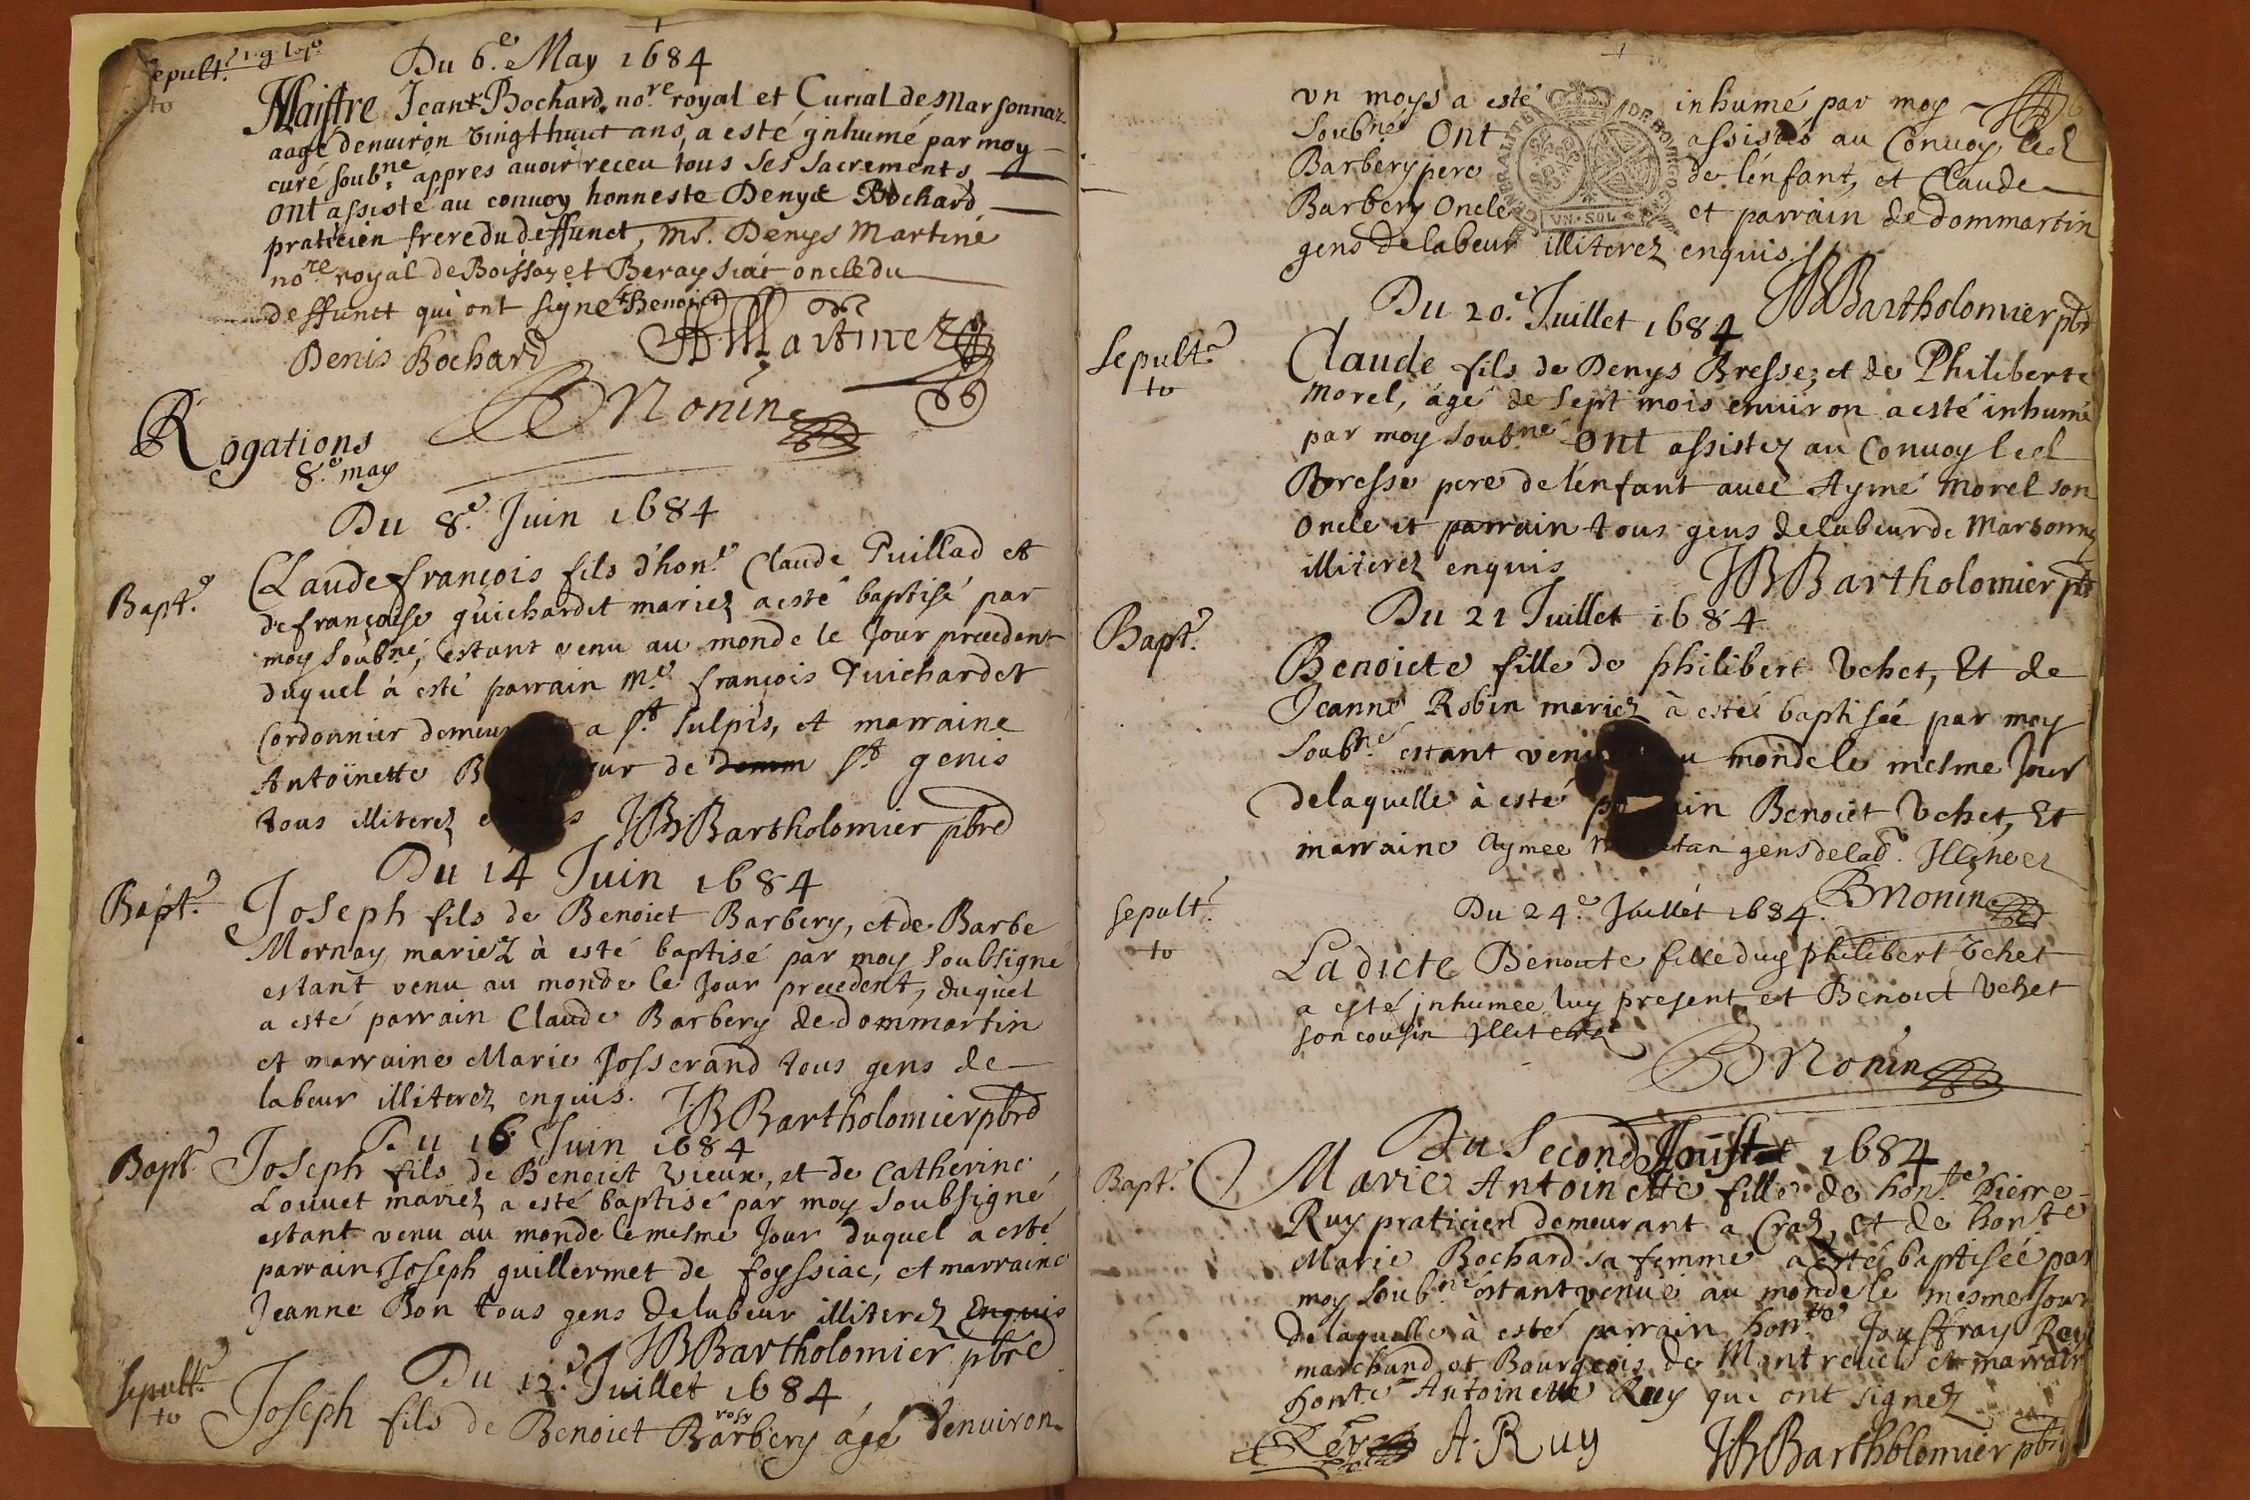 Sepult.re
to
Du 6.e May 1684
Maistre Jean Bochard no.re royal et Curial de Marsonnaz
aagé denuiron vingt huict ans, a esté jnhumé par moy
curé soub.né appres auoir receu tous ses sacrements
ont assisté au conuoy honneste Denys Bochard
praticien frere du deffunct, m.e Denys Martine
no.re royal de Boissey et Beray oncle du
deffunct qui ont signe Benoict
Denis Bochard Martine
B Monin
Rogations
8.e may
Du 8.e Juin 1684
Bapt.e
Claude françois fils d'hon.e Claude Puillad et
de françoise guichardet mariez a esté baptisé par
moy soub.né, estant venu au monde le Jour precedent
duquel à esté parrain M.e françois Guichardet
Cordonnier a S.t Sulpis, et marraine
Antoïnette de Domm S.t genis
tous illiterez JB Bartholomier pbre
Du 14 Juin 1684
Bapt.e
Joseph fils de Benoict Barbery, et de Barbe
Mornay mariez à esté baptisé par moy soubsigné
estant venu au monde le Jour precedent, duquel
a esté parrain Claude Barbery de dommartin
et marraine Marie Josserand tous gens de
labeur illiterez enquis. JB Bartholomier pbre
Du 16 Juin 1684
Bapt.e
Joseph fils de Benoict Vieux, et de Catherine
Louuet mariez a esté baptisé par moy soubsigné
estant venu au monde le mesme Jour duquel a esté
parrain Joseph guillermet de foyssiac, et marraine
Jeanne Bon tous gens de labeur illiterez Enquis
JB Bartholomier pbre
Du 12.e Juillet 1684
Sepult.re
to
Joseph fils de Benoict Barbery âgé denuiron
vn moys a esté inhumé par moy
Soub.né Ont assistés au Conuoy led
Barbery pere de l'enfant, et Claude
Barbery Oncle et parrain de dommartin
gens de labeur illiterez enquis.
GENERALITE DE BOVRGOGNE
VN·SOL
JB Bartholomier pbre
Du 20.e Juillet 1684
Sepult.e
to
Claude fils de Denys Bresse, et de Philiberte
Morel, âgé de sept mois enuiron a esté inhumé
par moy soub.né Ont assistez au Conuoy led
Bresse pere de l'enfant auec Aymé Morel son
Oncle et parrain tous gens de labeur de Marsonnas
illiterez enquis JB Bartholomier pbr
Du 21 Juillet 1684
Bapt.e
Benoicte fille de philibert Vchet, Et de
Jeanne Robin mariez à esté baptisée par moy
Soub.né estant monde le mesme Jour
de laquelle à esté Benoict Vchet, Et
marraine Aymee gens de lad.
B Monin
Sepult.e
to
Du 24.e Juillet 1684.
La dicte Benoicte fille du philibert Vchet
a esté jnhumee luy present et Benoict Vchet
son cousin Jlliterez
B Monin
Du Second Aoust 1684
Bapt.e
Marie Antoinette fille de hon.te Pierre
Ruy praticien demeurant a Craz, et de honte
Marie Bochard sa femme a esté baptisée par
moy soub.né estant venüe au monde le mesme Jour
de laquelle à esté parrain hon.te Jouffray Ruy
marchand et Bourgeois de Montreuel et marraine
hon.te Antoinette Ruy qui ont signez
A. Ruy JB Bartholomier pbr